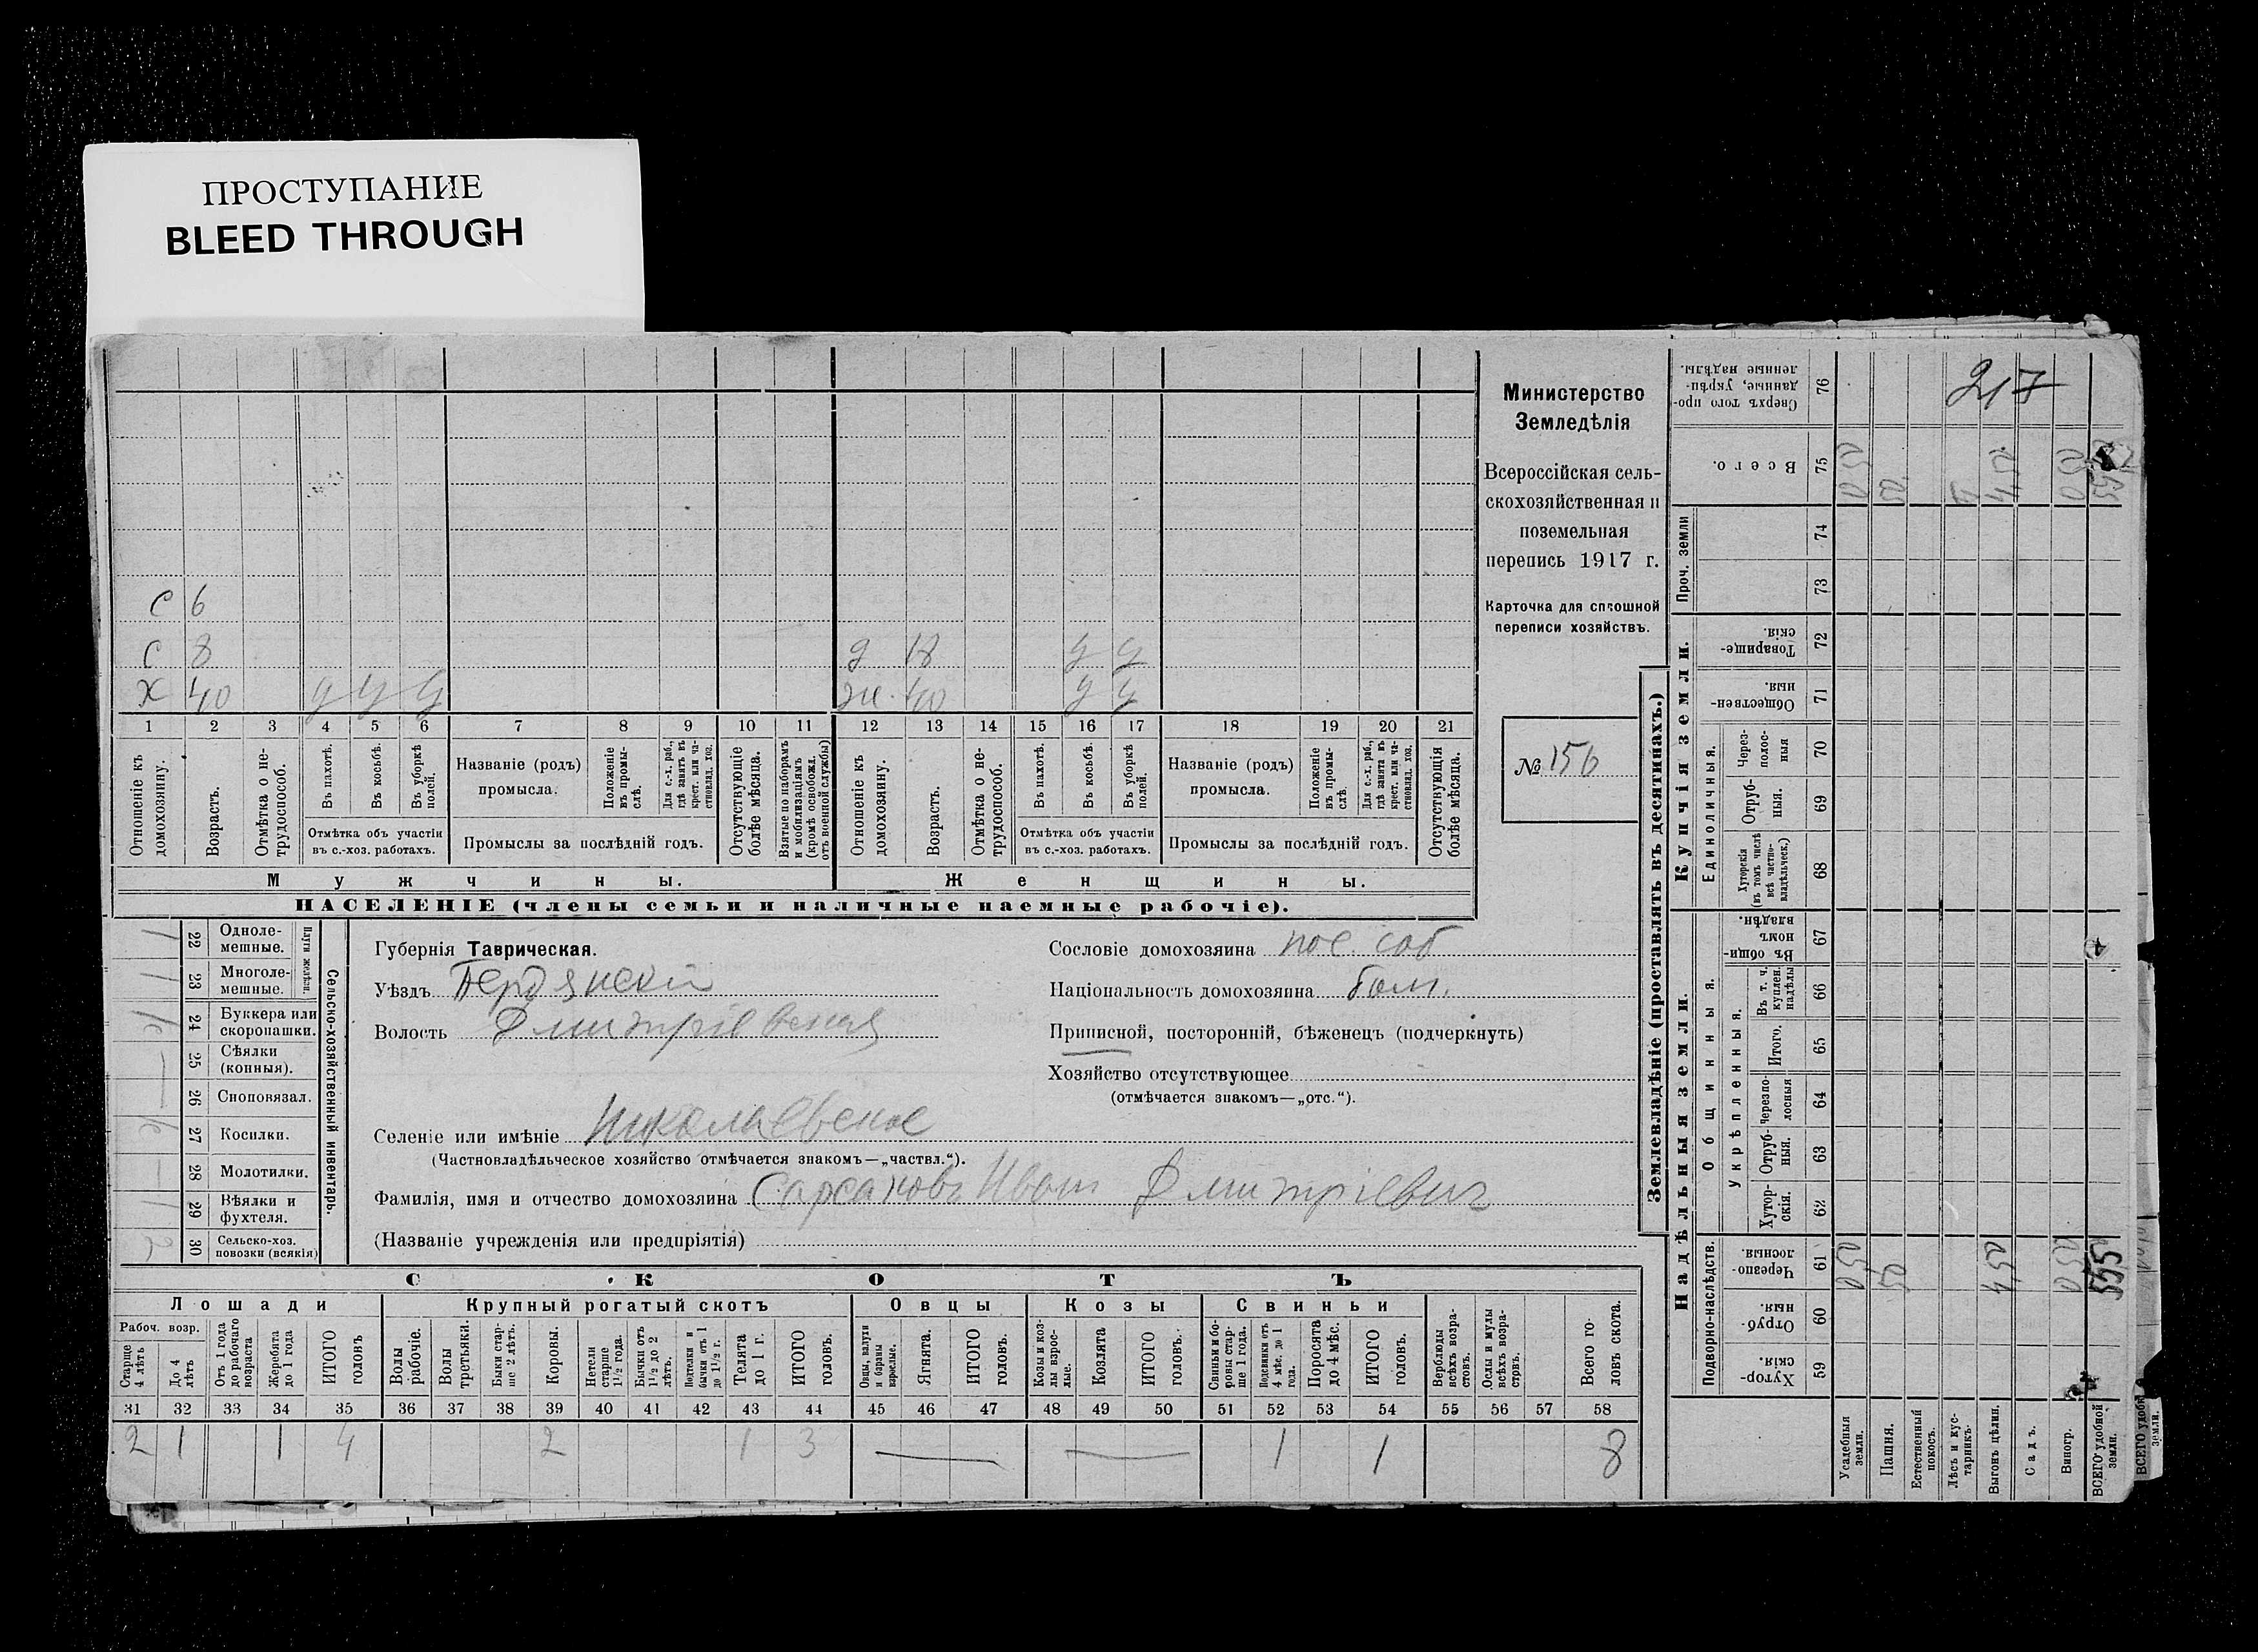 ПРОСТУПАНИЕ
BLEED THROUGH
с 6
с 8 д 18 у у
х 40 у у у ж 40 у у
1 2 3 4 5 6 7 8 9 10 11 12 13 14 15 16 17 18 19 20 21
Отношеніе къ домохозяину.
Возрастъ.
Отмѣтка о не-трудоспособ.
Въ пахотѣ.
Въ косьбѣ.
Въ уборкѣ полей.
Отмѣтка объ участіи
въ с.-хоз. работахъ.
Названіе (родъ)
промысла.
Положеніе въ промы-слѣ.
Для с.-х. раб., гдѣ занятъ въ крест. или ча-стновлад. хоз.
Промыслы за послѣдній годъ.
Отсутствующіе болѣе мѣсяца.
Взятые по наборамъ и мобилизаціямъ (кромѣ освобожд. отъ военной службы)
Отношеніе къ домохозяину.
Возрастъ.
Отмѣтка о не-трудоспособ.
Въ пахотѣ.
Въ косьбѣ.
Въ уборкѣ полей.
Отмѣтка объ участіи
въ с.-хоз. работахъ.
Названіе (родъ)
промысла.
Положеніе въ промы-слѣ.
Для с.-х. раб., гдѣ занята въ крест. или ча-стновлад. хоз.
Промыслы за послѣдній годъ.
Отсутствующія болѣе мѣсяца.
Мужчины.
Женщины.
НАСЕЛЕНІЕ (члены семьи и наличные наемные рабочіе).
Министерство
Земледѣлія
Всероссійская сель-
скохозяйственная и
поземельная
перепись 1917 г.
Карточка для сплошной
переписи хозяйствъ.
№ 156
Сельско-хозяйственный инвентарь.
Плуги желѣзн.
1 22 Одноле-мешные.
1 23 Многоле-мешные.
24 Буккера или скоропашки.
— 25 Сѣялки (конныя).
— 26 Сноповязал.
27 Косилки.
— 28 Молотилки.
1 29 Вѣялки и фухтеля.
2 30 Сельско-хоз. повозки (всякія)
Губернія Таврическая.
Уѣздъ Бердянскій
Волость Дмитріевская
Селеніе или имѣніе Николаевское
(Частновладѣльческое хозяйство отмѣчается знакомъ—„частвл.“).
Фамилія, имя и отчество домохозяина Сарсаковъ Иван Дмитріевич
(Названіе учрежденія или предпріятія)
Сословіе домохозяина пос. соб
Національность домохозяина болг.
Приписной, посторонній, бѣженецъ (подчеркнуть)
Хозяйство отсутствующее
(отмѣчается знакомъ—„отс.“).
СКОТЪ
Лошади
Крупный рогатый скотъ
Овцы
Козы
Свиньи
Рабоч. возр.
Старше 4 лѣтъ
До 4 лѣтъ
Отъ 1 года до рабочаго возраста
Жеребята до 1 года
ИТОГО головъ
Волы рабочіе.
Волы третьяки.
Быки стар-ше 2 лѣтъ.
Коровы.
Нетели старше 1½ года.
Бычки отъ 1½ до 2 лѣтъ.
Подтелки и бычки отъ 1 до 1½ г.
Телята до 1 г.
ИТОГО головъ.
Овцы, валухи и бараны взрослые.
Ягнята.
ИТОГО головъ.
Козы и коз-лы взрос-лые.
Козлята
ИТОГО головъ.
Свиньи и бо-ровы стар-ше 1 года.
Подсвинки отъ 4 мѣс. до 1 года.
Поросята до 4 мѣс.
ИТОГО головъ.
Верблюды всѣхъ возра-стовъ.
Ослы и мулы всѣхъ возра-стовъ.
Всего го-ловъ скота.
31 32 33 34 35 36 37 38 39 40 41 42 43 44 45 46 47 48 49 50 51 52 53 54 55 56 57 58
2 1 1 4 2 1 3 — — 1 1 8
Землевладѣніе (проставлять въ десятинахъ.)
Надѣльныя земли.
Купчія земли.
Проч. земли
Подворно-наслѣдств.
Общинныя.
Укрѣпленныя.
Единоличныя.
Сверхъ того про-данные, укрѣп-ленные надѣлы. 76
Всего. 75
74
73
Товарище-скія. 72
Обществен-ныя. 71
Через-полос-ныя 70
Отруб-ныя. 69
Хуторскія (въ томъ числѣ всѣ частно-владѣльческ.) 68
Въ общи-номъ владѣн. 67
Въ т. ч. куплен. надѣлы 66
Итого. 65
Черезпо-лосныя 64
Отруб-ныя. 63
Хутор-скія. 62
Черезпо-лосныя. 61
Отруб-ныя. 60
Хутор-скія. 59
217
Усадебныя земли.
Пашня.
Естественный покосъ.
Лѣсъ и кус-тарникъ.
Выгонъ цѣлин.
Садъ.
Виногр.
ВСЕГО удобной земли.
ВСЕГО удобн земли.